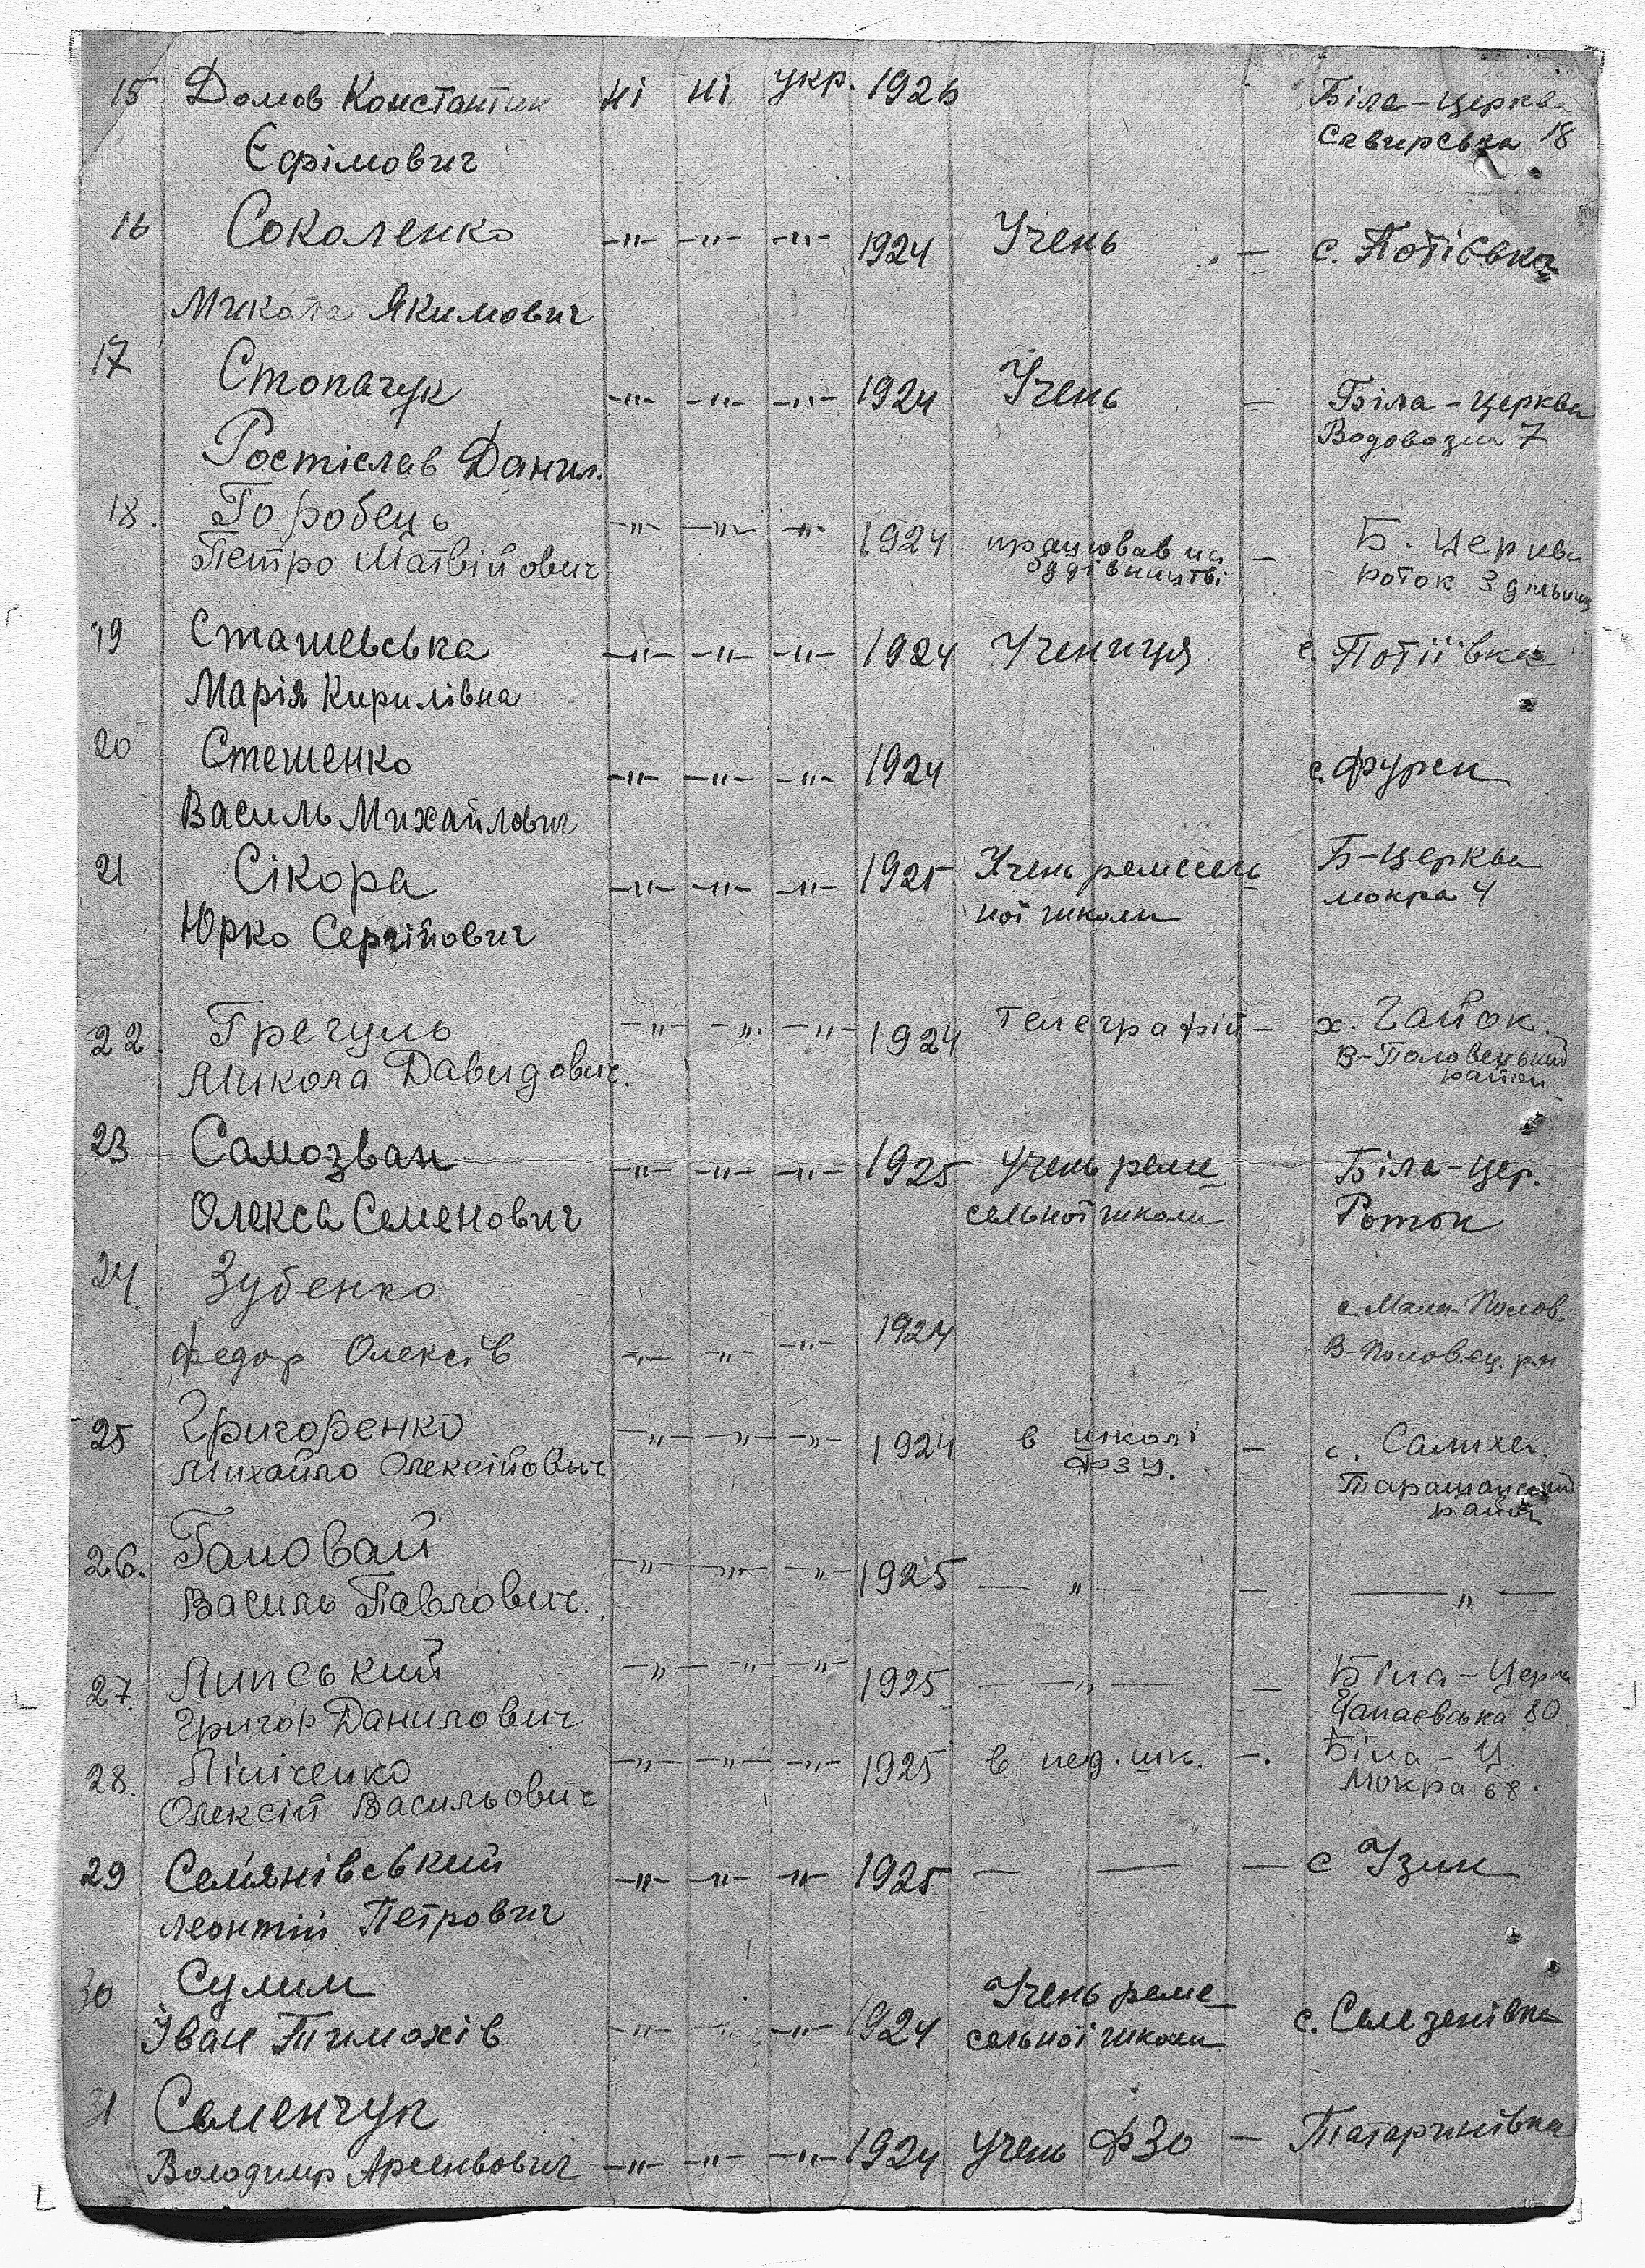 15 Домов Константин ні ні укр. 1926 Біла-Церква
Єфімович Сквирська 18
16 Сокаленко —"— —"— —"— 1924 Учень — с. Потіївка
Микола Якимович
17 Стопачук —"— —"— —"— 1924 Учень — Біла-Церква
Ростіслав Данил. Водовозна 7
18. Горобець —"— —"— —"— 1924 працював на — Б. Церква
Петро Матвійович будівництві роток 3
19 Сташевська —"— —"— —"— 1924 Учениця с. Потіївка
Марія Кирилівна
20 Стешенко —"— —"— —"— 1924 с. Фурси
Василь Михайлович
21 Сікора —"— —"— —"— 1925 Учень ремесель Б-Церква
Юрко Сергійович ної школи мокра 4
22. Гречуль —"— —"— —"— 1924 телеграфій — х. Гайок.
Микола Давидович. В-Половецький
район
23 Самозван —"— —"— —"— 1925 Учень реме Біла-Цер.
Олекса Семенович сельної школи Роток
24. Зубенко с. Мала Полов.
Федор Олексів —"— —"— —"— 1924 В-Половец. рн
25 Григоренко —"— —"— —"— 1924 в школі — с.
Михайло Олексійович ФЗУ. Таращанський
район
26. —"— —"— —"— 1925 —"— — —"—
Василь Павлович.
27. Липський —"— —"— —"— 1925 —"— — Біла-Церк
Григор Данилович Чапаєвська 80.
28. Ліпіченко —"— —"— —"— 1925 в пед. шк. —. Біла-Ц.
Олексій Васильович Мокра 68.
29 Сем'янівський —"— —"— —"— 1925 — — — с Узин
Леонтій Петрович
30 Сулим Учень реме
Іван Тимохів —"— —"— —"— 1924 сельної школи с. Селезенівка
31 Семенчук
Володимир Арсеньович —"— —"— —"— 1924 Учень ФЗО — Татаринівка